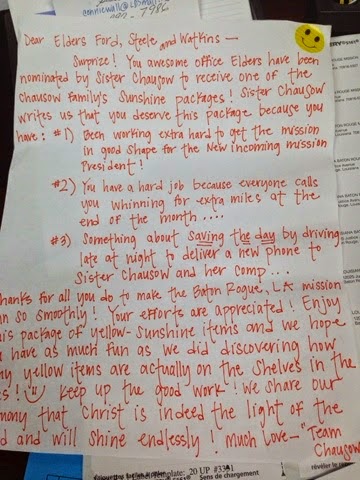 enniewall@
7986
Dear Elders Ford, Steele and Watkins —
Surprize! You awesome office Elders have been
nominated by Sister Chausow to receive one of the
Chausow Family's Sunshine packages! Sister Chausow
writes us that you deserve this package because you
have: #1) Been working extra hard to get the mission
in good shape for the New incoming mission
President!
#2) You have a hard job because everyone calls
you whinning for extra miles at the
end of the month....
#3) Something about saving the day by driving
late at night to deliver a new phone to
Sister Chausow and her comp...
hanks for all you do to make the Baton Rogue, LA mission
n so smoothly! Your efforts are appreciated! Enjoy
is package of yellow-sunshine items and we hope
have as much fun as we did discovering how
y yellow items are actually on the shelves in the
s! Keep up the good work! We share our
mony that Christ is indeed the light of the
d and will shine endlessly! Much Love — "Team
Chausow
Template: 20 UP #3351
Sens de chargement
révéler le